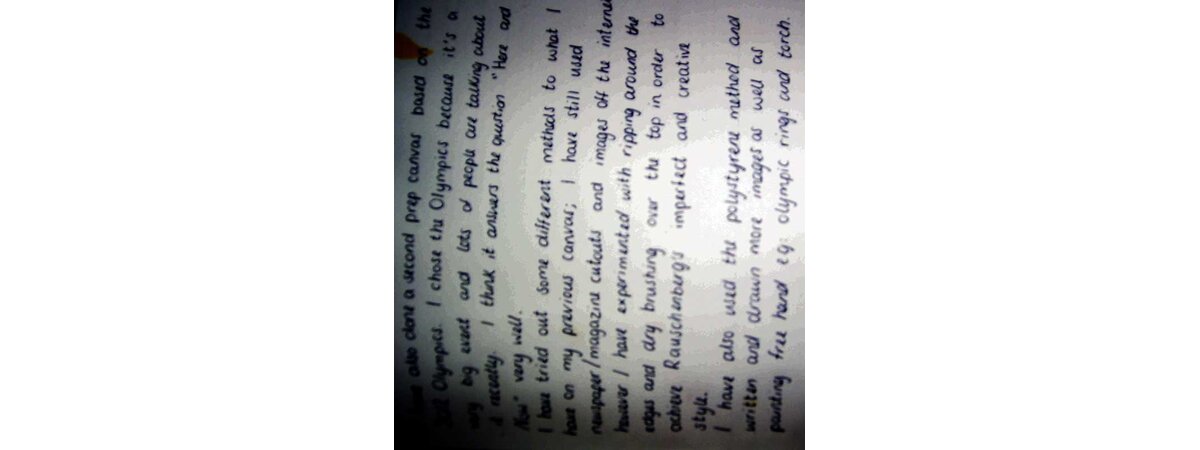 have also done a second prep canvas based on the
Olympics. I chose the Olympics because it's a
very big event and lots of people are talking about
it recently. I think it answers the question "Here and
Now" very well.
I have tried out some different methods to what I
have on my previous canvas; I have still used
newspaper/magazine cutouts and images off the internet
however I have experimented with ripping around the
edges and dry brushing over the top in order to
achieve Rauschenberg's imperfect and creative
style.
I have also used the polystyrene method and
written and drawn more images as well as
painting free hand eg: olympic rings and torch.